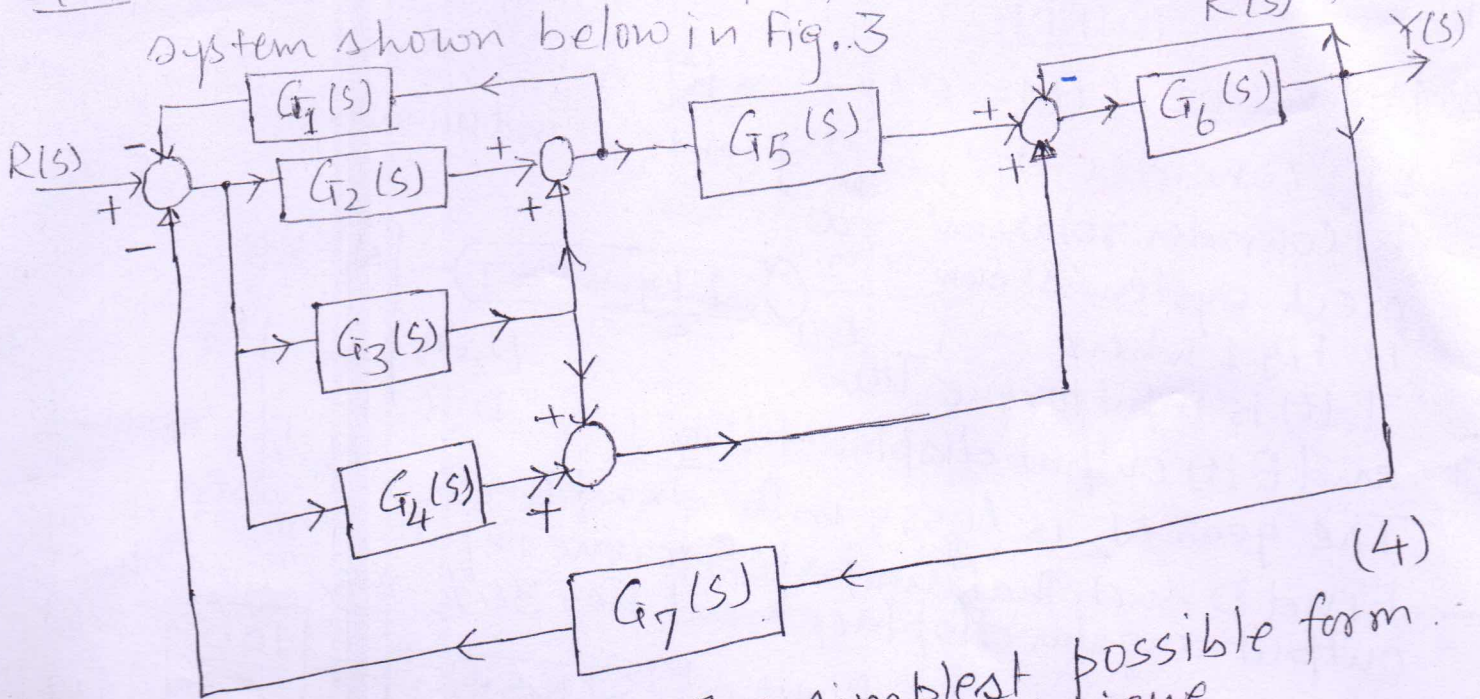 system shown below in Fig. 3
R(S)
Y(S)
G1(S)
-
R(S)
+
-
G2(S)
+
+
G5(S)
+
-
+
G6(S)
G3(S)
+
G4(S)
+
G7(S)
(4)
simplest possible form.